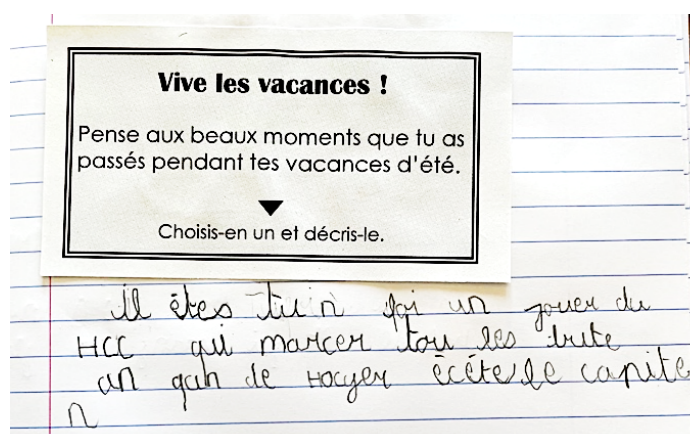 Vive les vacances !
Pense aux beaux moments que tu as
passés pendant tes vacances d'été.
Choisis-en un et décris-le.
il êtes tu n foi un jouer du
HCC qui marcer tou les bute
un gah de Hocyer écéte le capite
n